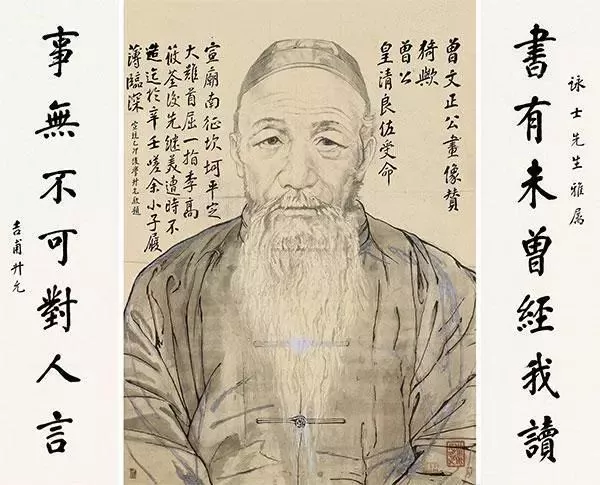 詠士先生雅属
書有未曾經我讀
曾文正公畫像贊
猗歟
曾公
皇清良佐受命
宣廟南征坎坷平定
大難首屈一指李高
筱荃後先繼美遭時不
造迄於辛壬嗟余小子履
薄臨深
宣統乙卯後學升允敬題
事無不可對人言
吉甫升允